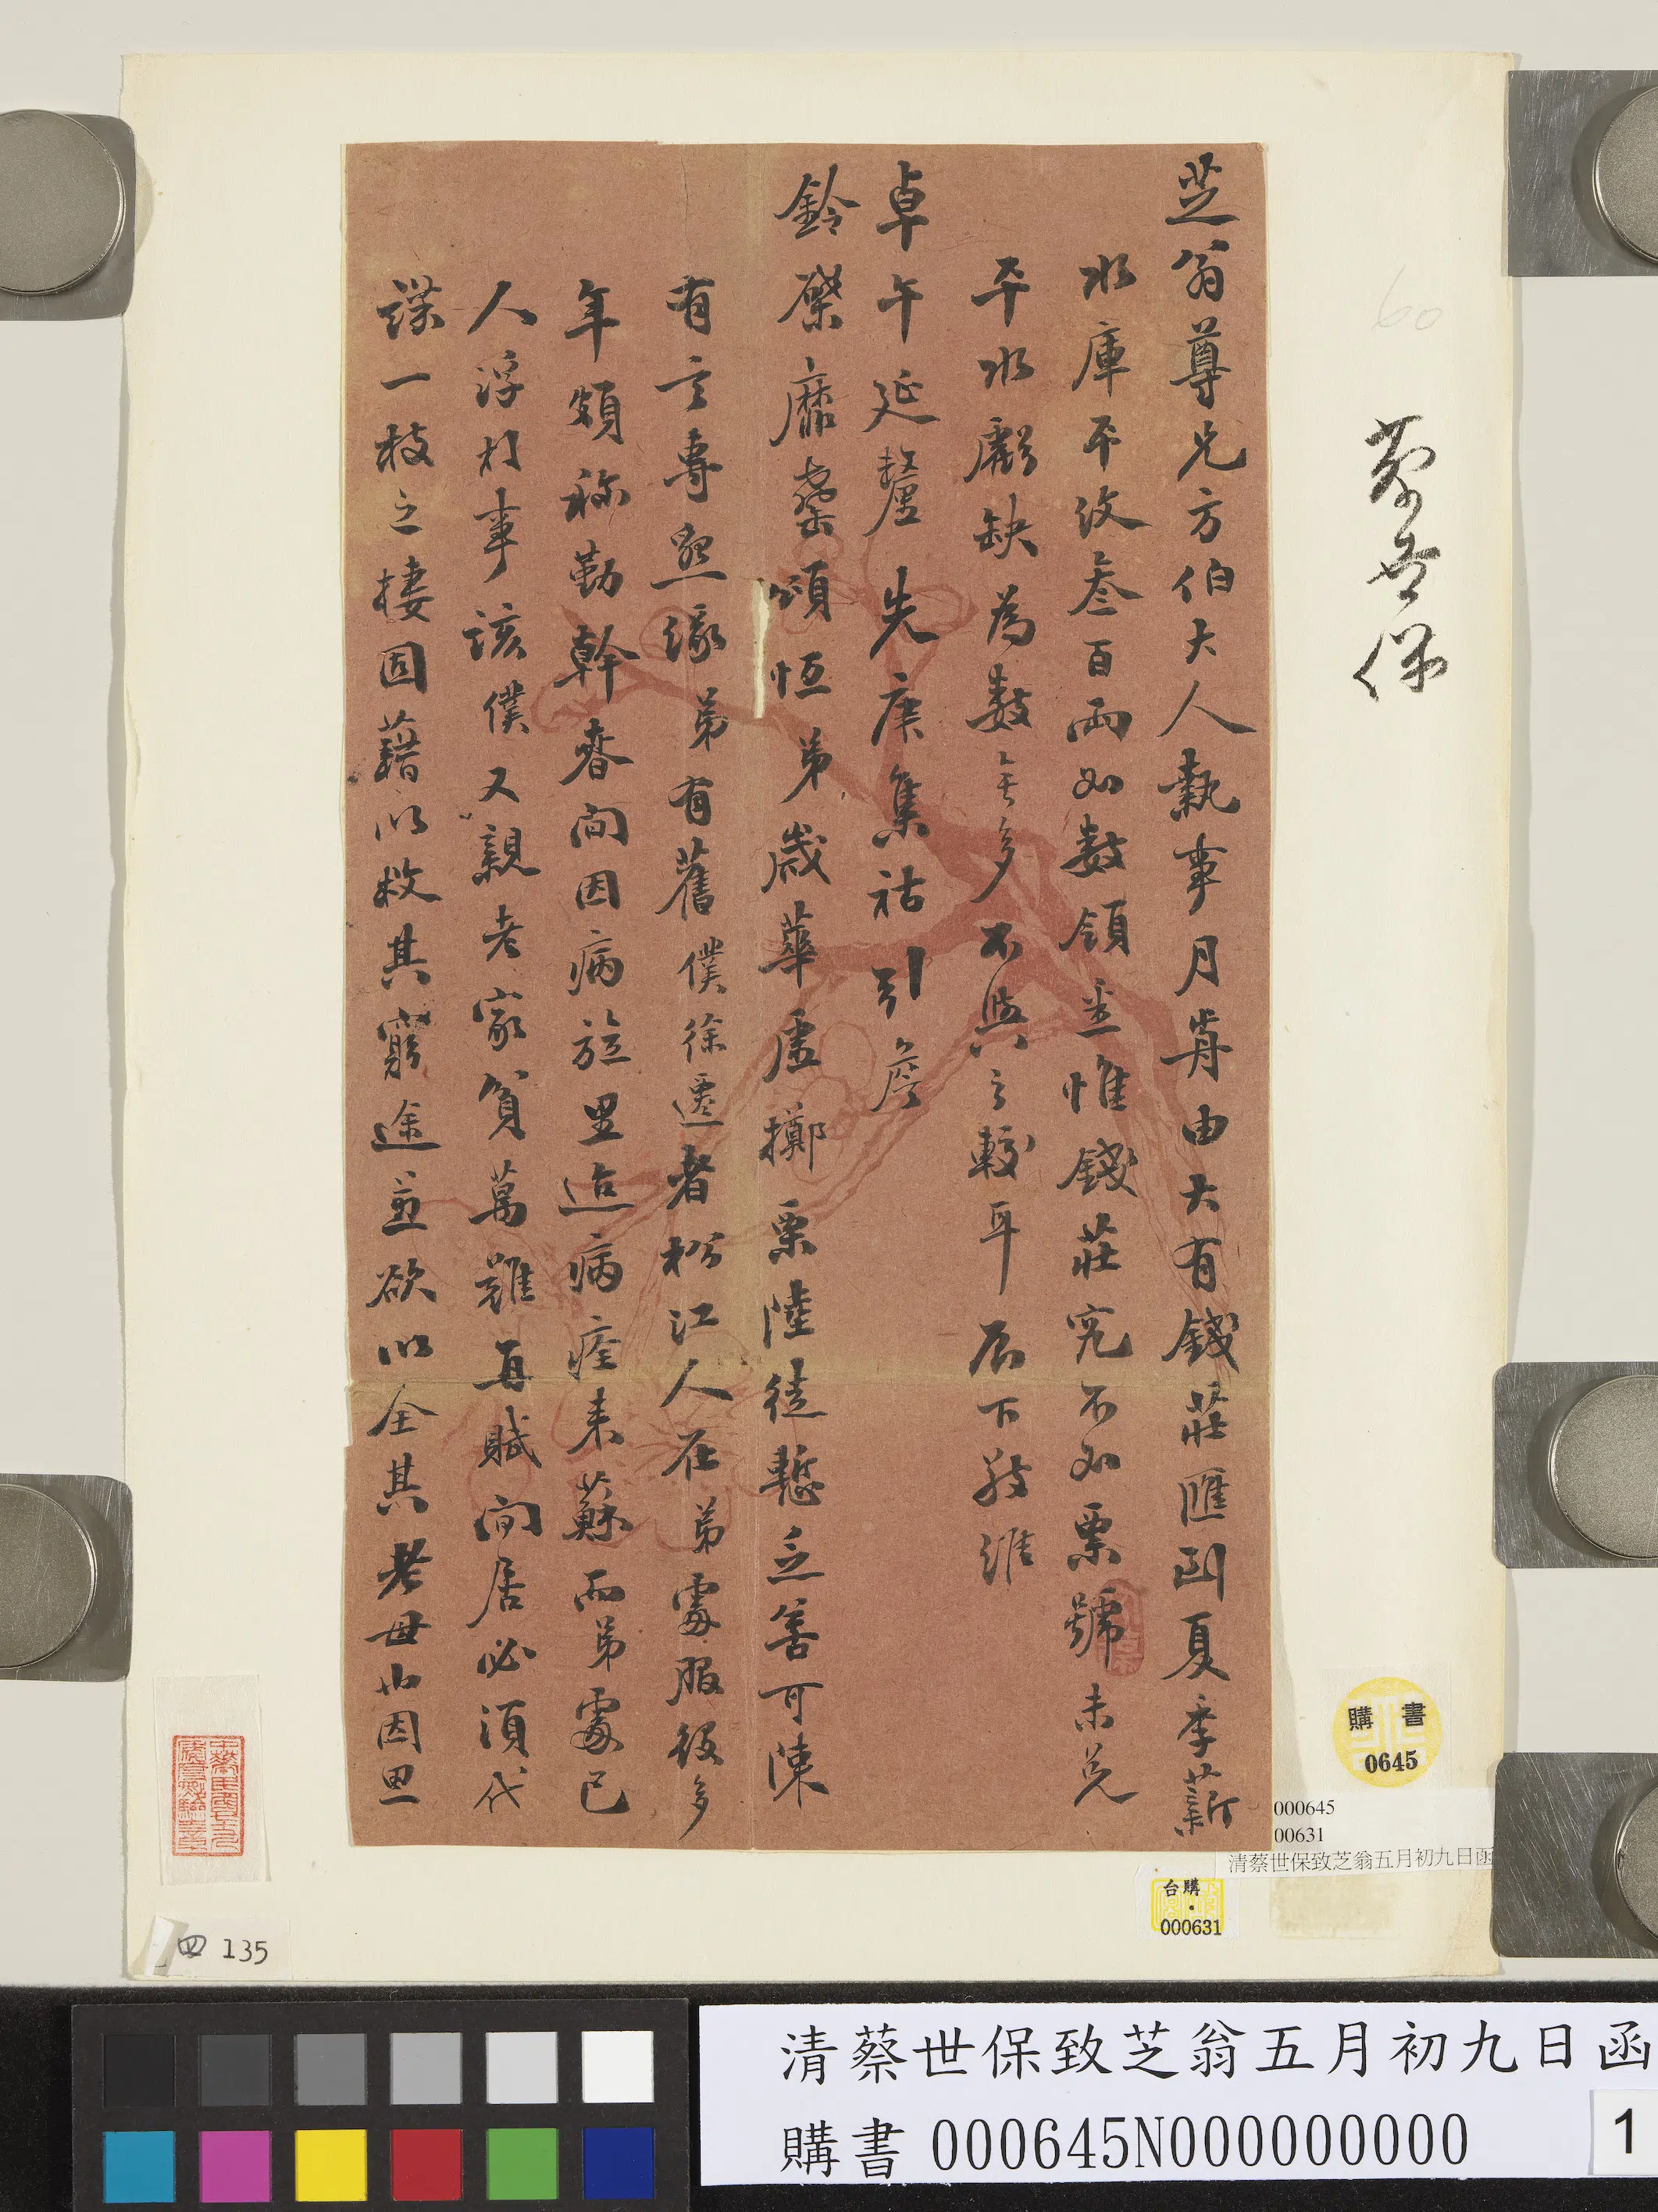 芝翁尊兄方伯大人執事月前由大有錢莊匯到夏季薪
水庫平紋叁百兩如數領悉惟錢莊究不如票號未免
平水虧缺為數無多不與之較耳辰下敬維
卓午延釐先庚集祜引詹
鈴棨靡罄頌恒弟歲華虛擲栗陸徒慙乏善可陳
有言專懇緣弟有舊僕徐遷者松江人在弟處服役多
年頗稱勤幹春間因病旋里迨病痊來蘇而弟處已
人浮於事該僕又親老家貧萬難再賦閒居必須代
謀一枝之棲固藉以救其窮途並欲以全其老母也因思
蔡世保
60
購書
0645
000645
00631
清蔡世保致芝翁五月初九日函
購台
000631
四 135
清蔡世保致芝翁五月初九日函
購書 000645N000000000
1